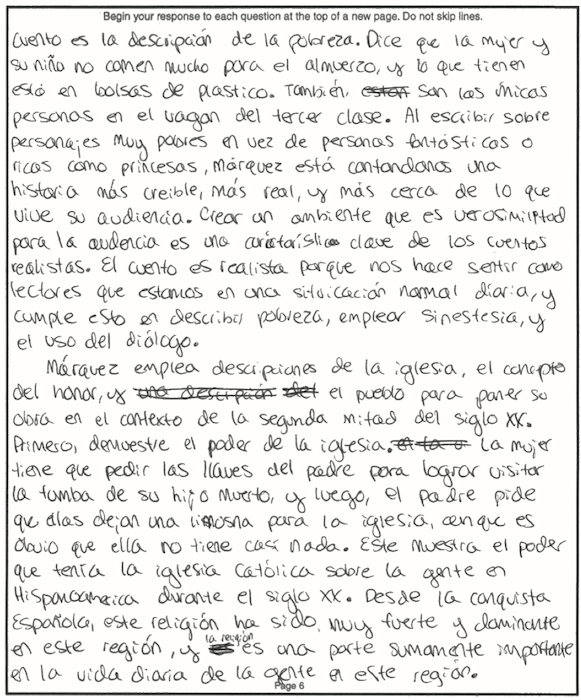 Begin your response to each question at the top of a new page. Do not skip lines.
cuento es la descripción de la pobreza. Dice que la mujer y
su niña no comen mucho para el almuerzo, y lo que tienen
está en bolsas de plastico. También, están son las únicas
personas en el vagan del tercer clase. Al escribir sobre
personajes muy pobres en vez de personas fantásticas o
ricas como princesas, Márquez está contandonos una
historia más creible, más real, y más cerca de lo que
vive su audiencia. Crear un ambiente que es verosimilitad
para la audencia es una caractarística clave de los cuentos
realistas. El cuento es realista porque nos hace sentir como
lectores que estamos en una situicación normal diaria, y
cumple esto en describir pobreza, emplear sinestesia, y
el uso del diálogo.
Márquez emplea descripciones de la iglesia, el concepto
del honor, y una descripción del el pueblo para poner su
obra en el contexto de la segunda mitad del siglo XX.
Primero, demuestre el poder de la iglesia. La mujer
tiene que pedir las llaves del padre para lograr visitar
la tumba de su hijo muerto, y luego, el padre pide
que ellas dejan una limosna para la iglesia, aunque es
obvio que ella no tiene casi nada. Este muestra el poder
que tenía la iglesia Católica sobre la gente en
Hispanoamerica durante el siglo XX. Desde la conquista
Española, este religión ha sido muy fuerte y dominante
en este región, y la religión es una parte sumamente importante
en la vida diaria de la gente en este región.
Page 6